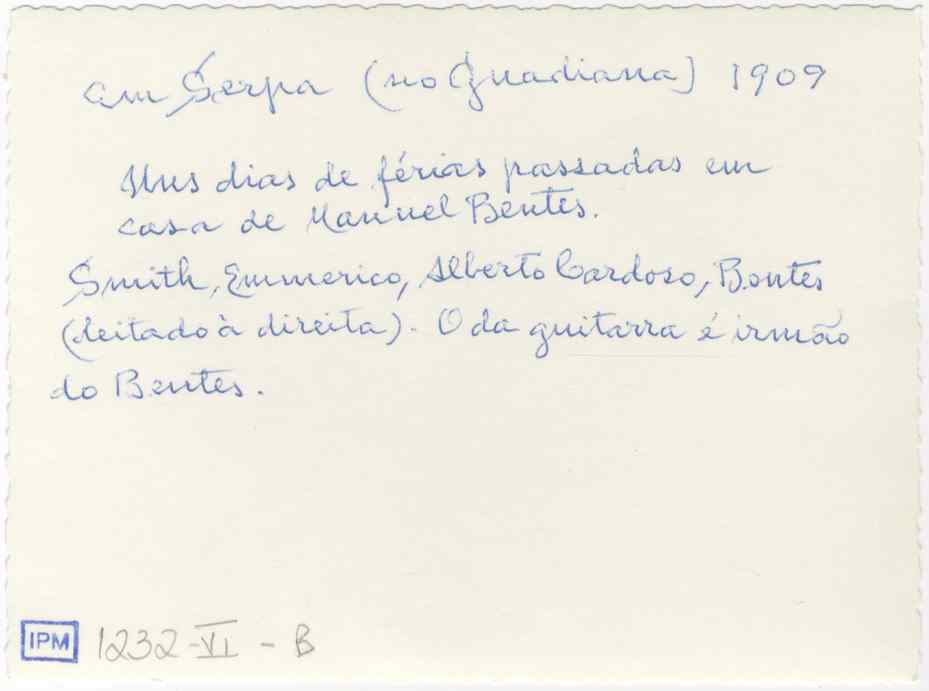 em Serpa (no Guadiana) 1909
Uns dias de férias passadas em
casa de Manuel Bentes.
Smith, Emmerico, Alberto Cardoso, Bentes
(deitado à direita). O da guitarra é irmão
do Bentes.
IPM 1232-VI-B